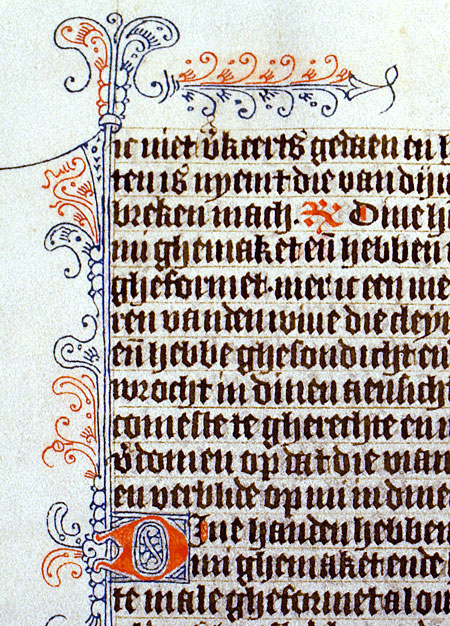 ic niet v̄keerts gedaen en
ten is nyemt die van dijn
breken mach. R Dine h
mi ghemaket eñ hebben
gheformet. mer ic een me
ren vanden wiue die cley
eñ hebbe ghesondicht en
wrocht in dinen aensicht
comeste te gherechte en
v̄domen op dat die vian
en verblide op mi in dine
Dine handen hebben
mi ghemaket ende
te male gheformet al om